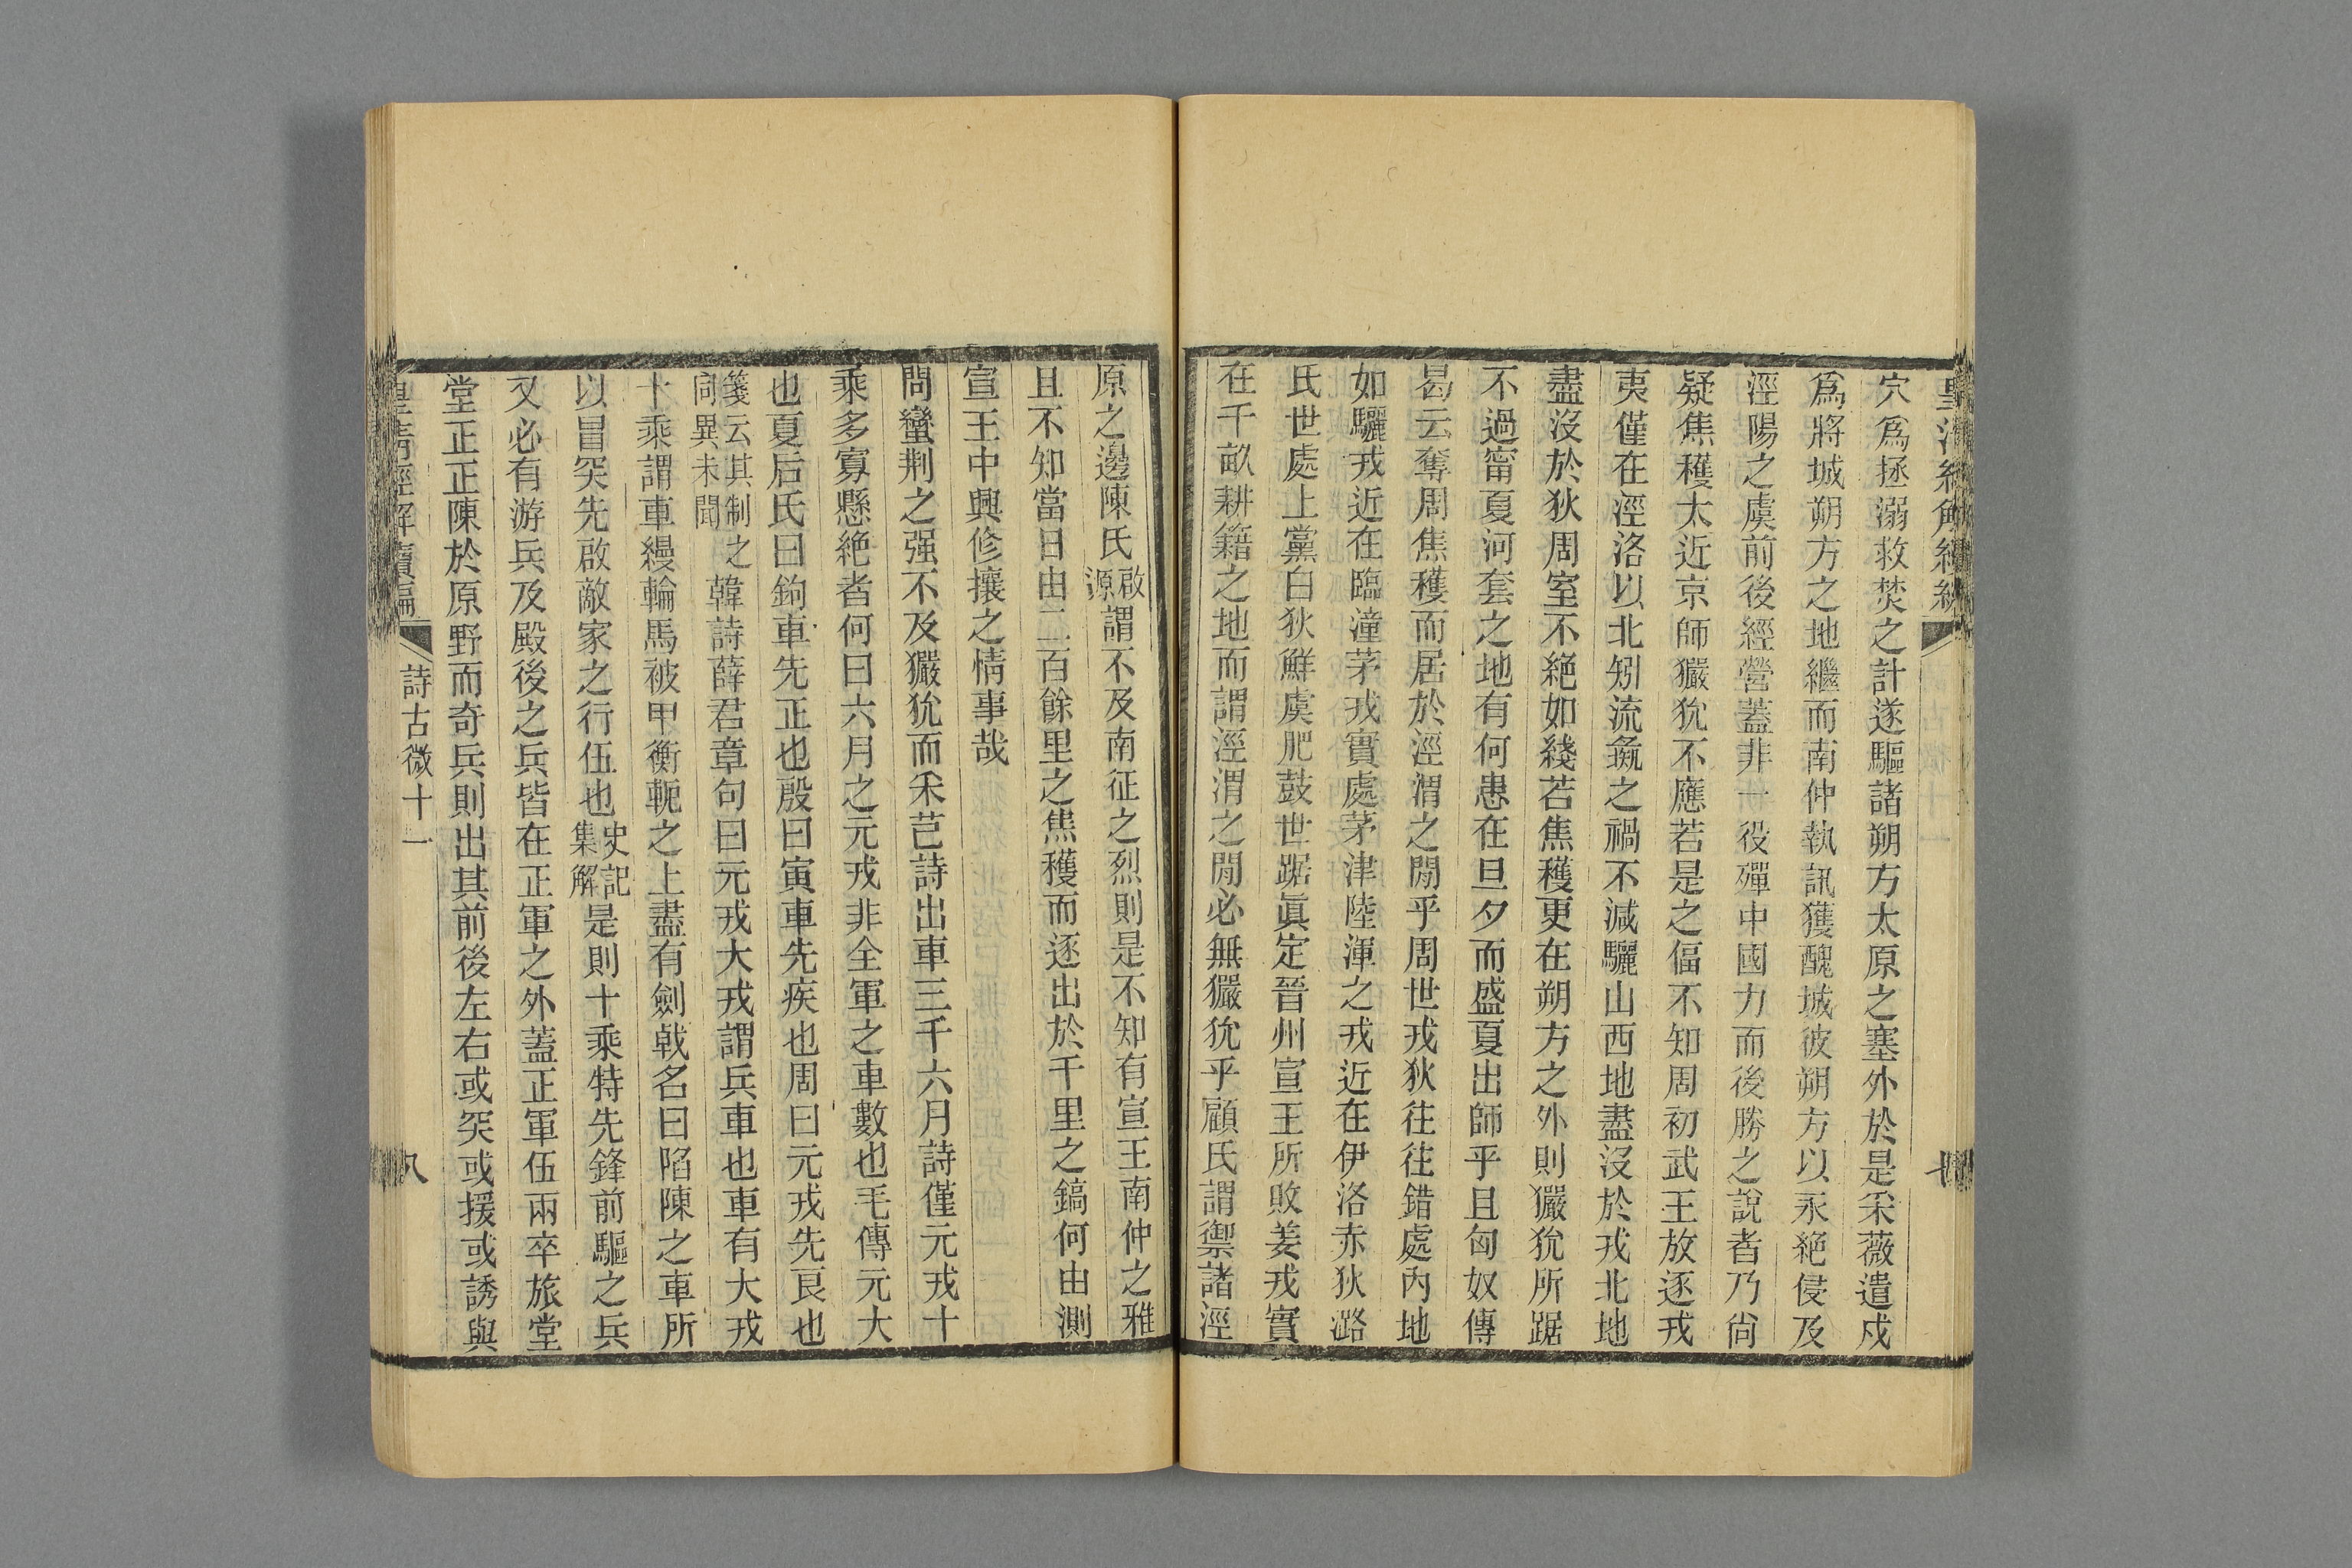 穴爲拯溺救焚之計遂驅諸朔方太原之塞外於是采薇遣戍
爲將城朔方之地繼而南仲執訊獲醜城彼朔方以永絕侵及
涇陽之虞前後經營蓋非一役殫中國力而後勝之說者乃尙
疑焦穫太近京師玁狁不應若是之偪不知周初武王放逐戎
夷僅在涇洛以北矧流彘之禍不減驪山西地盡沒於戎北地
盡沒於狄周室不絕如綫若焦穫更在朔方之外則玁狁所踞
不過甯夏河套之地有何患在旦夕而盛夏出師乎且匈奴傳
曷云奪周焦穫而居於涇渭之閒乎周世戎狄往往錯處內地
如驪戎近在臨潼茅戎實處茅津陸渾之戎近在伊洛赤狄潞
氏世處上黨白狄鮮虞肥鼓世踞眞定晉州宣王所敗姜戎實
在千畝耕籍之地而謂涇渭之閒必無玁狁乎顧氏謂禦諸涇
原之邊陳氏啟源謂不及南征之烈則是不知有宣王南仲之雅
且不知當日由二百餘里之焦穫而逐出於千里之鎬何由測
宣王中興修攘之情事哉
問蠻荆之强不及玁狁而采芑詩出車三千六月詩僅元戎十
乘多寡懸絕者何曰六月之元戎非全軍之車數也毛傳元大
也夏后氏曰鉤車先正也殷曰寅車先疾也周曰元戎先良也
箋云其制之同異未聞韓詩薛君章句曰元戎大戎謂兵車也車有大戎
十乘謂車縵輪馬被甲衡軛之上盡有劍戟名曰陷陳之車所
以冒突先啟敵家之行伍也史記集解是則十乘特先鋒前驅之兵
又必有游兵及殿後之兵皆在正軍之外蓋正軍伍兩卒旅堂
堂正正陳於原野而奇兵則出其前後左右或突或援或誘與
皇清經解續編 詩古微十一 八